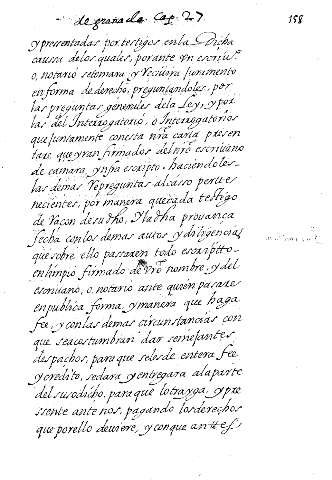 de granada. Cap. 27 158
y presentadas, por testigos en la Dicha
caussa de los quales, por ante vn escriuº
o, notario se tomara, y Reciuira Juramento
en forma de derecho, preguntandoles, por
las preguntas generales de la Ley, y por
las del Interrogatorio, o Interrogatorios
que Juntamente con esta nrã carta presen
tare que yran firmados del nrõ escriuano
de camara, ynfra escripto. haciendoles
las demas Repreguntas al casso perte
necientes, por manera que cada testigo
de Raçon de su dho, Y la dha prouança
fecha con los demas autos, y diligencias
que sobre ello passaren todo escriptto
en limpio firmado de vrõ nombre, y del
escriuano, o notario ante quien passare
en publica forma, y manera que haga
fee, y con las demas circunstancias con
que se acostumbran dar semejantes
despachos, para que se les de entera fee
y credito, se dara y entregara a la parte
del susodicho, para que lo trayga, y pre
ssente ante nos, pagando los derechos
que por ello deuiere, y con que antes,